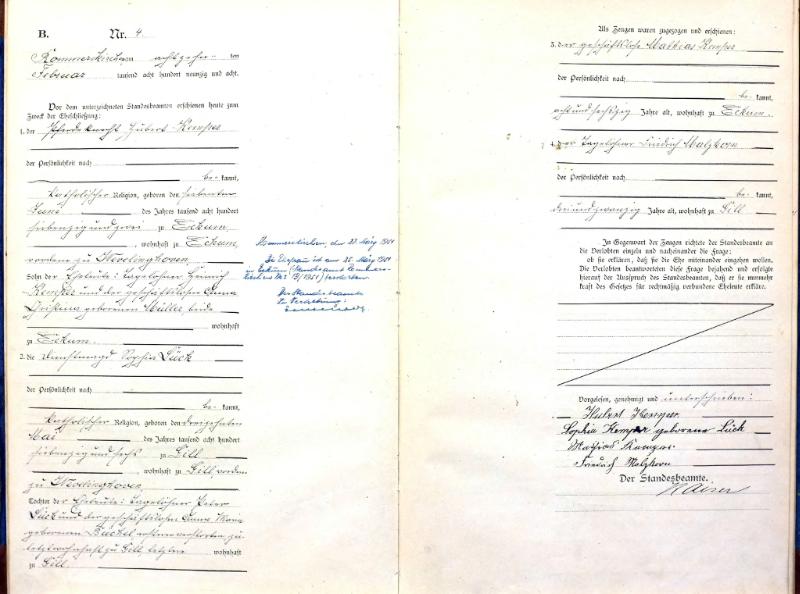 B. Nr. 4.
Rommerskirchen am achtzehnten
Februar tausend acht hundert neunzig und acht.
Vor dem unterzeichneten Standesbeamten erschienen heute zum
Zweck der Eheschließung:
1. der Pferdeknecht Hubert Kemper
der Persönlichkeit nach
be- kannt,
katholischer Religion, geboren den siebenten
Juni des Jahres tausend acht hundert
siebenzig und zwei zu Eckum,
, wohnhaft zu Eckum,
vordem zu Stevelinghoven,
Sohn der Eheleute: Tagelöhner Heinrich
Kemper und der geschäftslosen Anna
Christina geborenen Müller, beide
wohnhaft
zu Eckum.
2. die Dienstmagd Sophia Lück
der Persönlichkeit nach
be- kannt,
katholischer Religion, geboren den dreizehnten
Mai des Jahres tausend acht hundert
siebenzig und sechs zu Gill
, wohnhaft zu Gill, vordem
zu Stevelinghoven,
Tochter der Eheleute: Tagelöhner Peter
Lück und der geschäftslosen Anna Maria
geborenen Bückel, ersterer verstorben, zu-
letzt wohnhaft zu Gill, letztere wohnhaft
zu Gill.
Rommerskirchen, den 28. März 1951
Die Ehefrau ist am 25. März 1951
in Eckum (Standesamt Rommers-
kirchen Nr. /1951) verstorben
Der Standesbeamte
In Vertretung:
Als Zeugen waren zugezogen und erschienen:
3. der geschäftslose Mathias Kemper
der Persönlichkeit nach
be- kannt,
acht und sechszig Jahre alt, wohnhaft zu Eckum.
4. der Tagelöhner Friedrich Malzkorn
der Persönlichkeit nach
be- kannt,
drei und zwanzig Jahre alt, wohnhaft zu Gill.
In Gegenwart der Zeugen richtete der Standesbeamte an
die Verlobten einzeln und nacheinander die Frage:
ob sie erklären, daß sie die Ehe miteinander eingehen wollen.
Die Verlobten beantworteten diese Frage bejahend und erfolgte
hierauf der Ausspruch des Standesbeamten, daß er sie nunmehr
kraft des Gesetzes für rechtmäßig verbundene Eheleute erkläre.
Vorgelesen, genehmigt und unterschrieben:
Hubert Kemper
Sophia Kemper geborene Lück
Mathias Kemper
Friedrich Malzkorn
Der Standesbeamte.